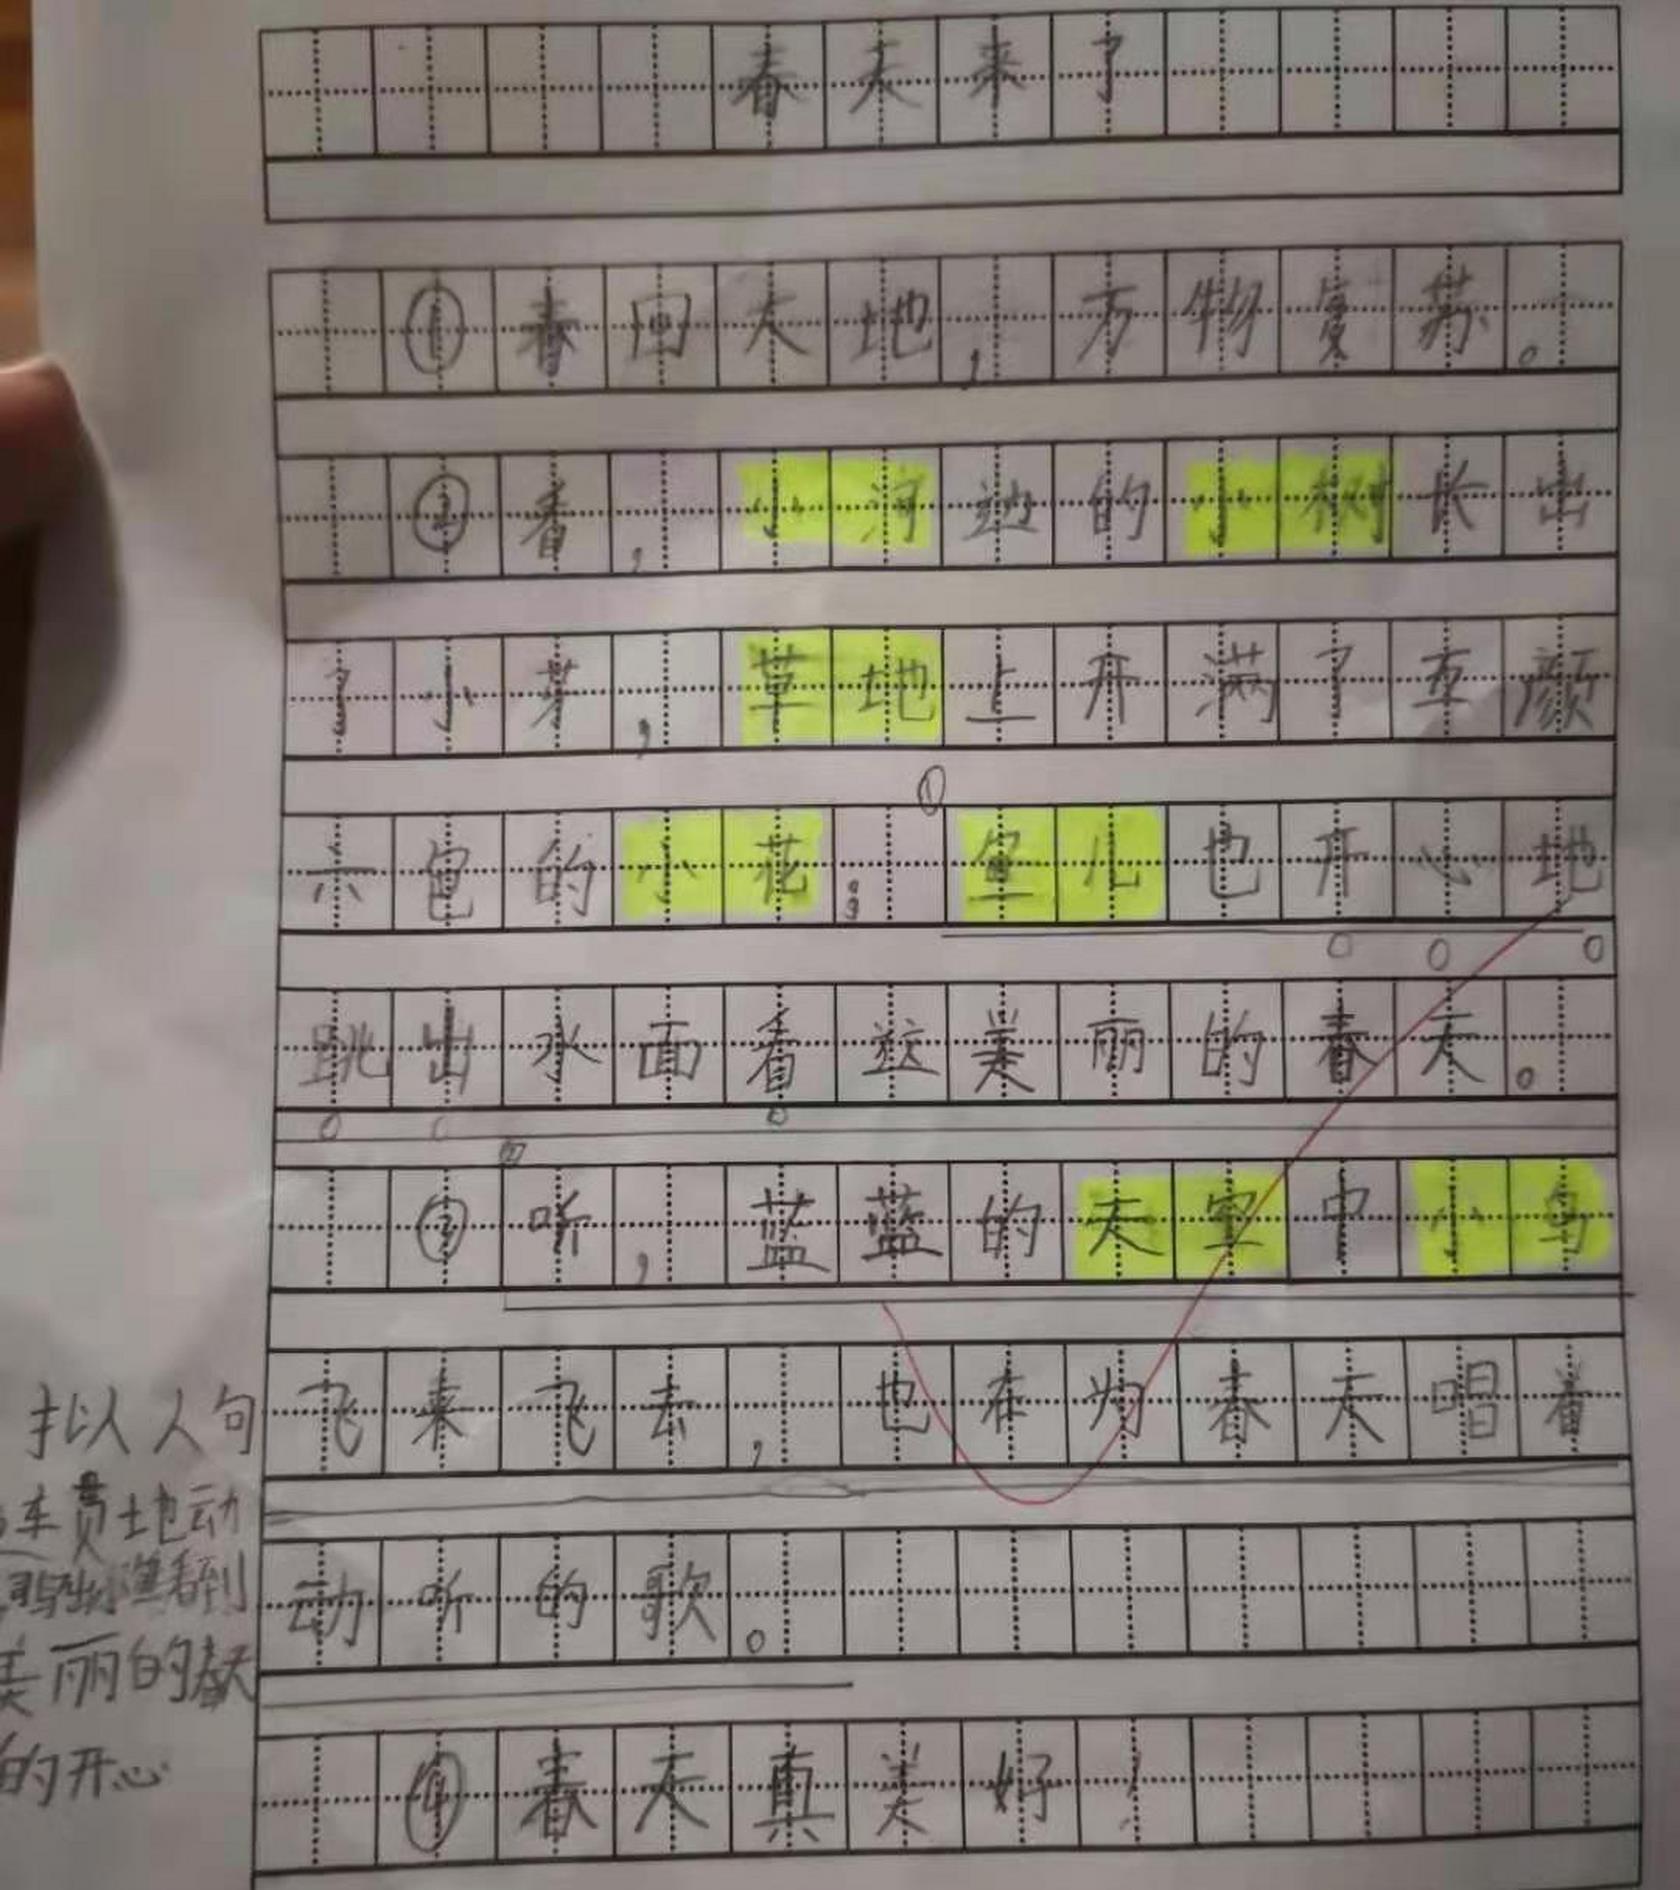 春天来了
①春回大地，万物复苏。
②看，小河边的小树长出
了小芽，草地上开满了五颜
①
六色的小花；鱼儿也开心地
跳出水面看这美丽的春天。
②
③听，蓝蓝的天空中小鸟
飞来飞去，也在为春天唱着
拟人句
动听的歌。
美丽的春天
④春天真美好！
的开心